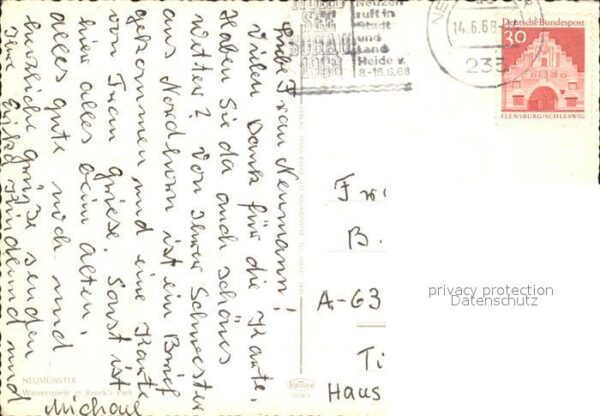 Liebe Frau Neumann!
Vielen Dank für die Karte.
Haben Sie da auch schönes
Wetter? Von Ihrer Schwester
aus Nordhorn ist ein Brief
gekommen und eine Karte
von Frau Griese. Sonst ist
hier alles beim alten,
alles gute noch und
herzliche Grüße senden
Ihre Erika Hindemund
Michael
NEUMÜNSTER
Wasserspiele in Rencks Park
Neuzeit
ruft in
Stadt
und
Land
Heide v.
8.-16.6.68
14.6.68
235
Deutsche Bundespost
30
FLENSBURG/SCHLESWIG
Fr
B.
A-63
Ti
Haus
privacy protection
Datenschutz